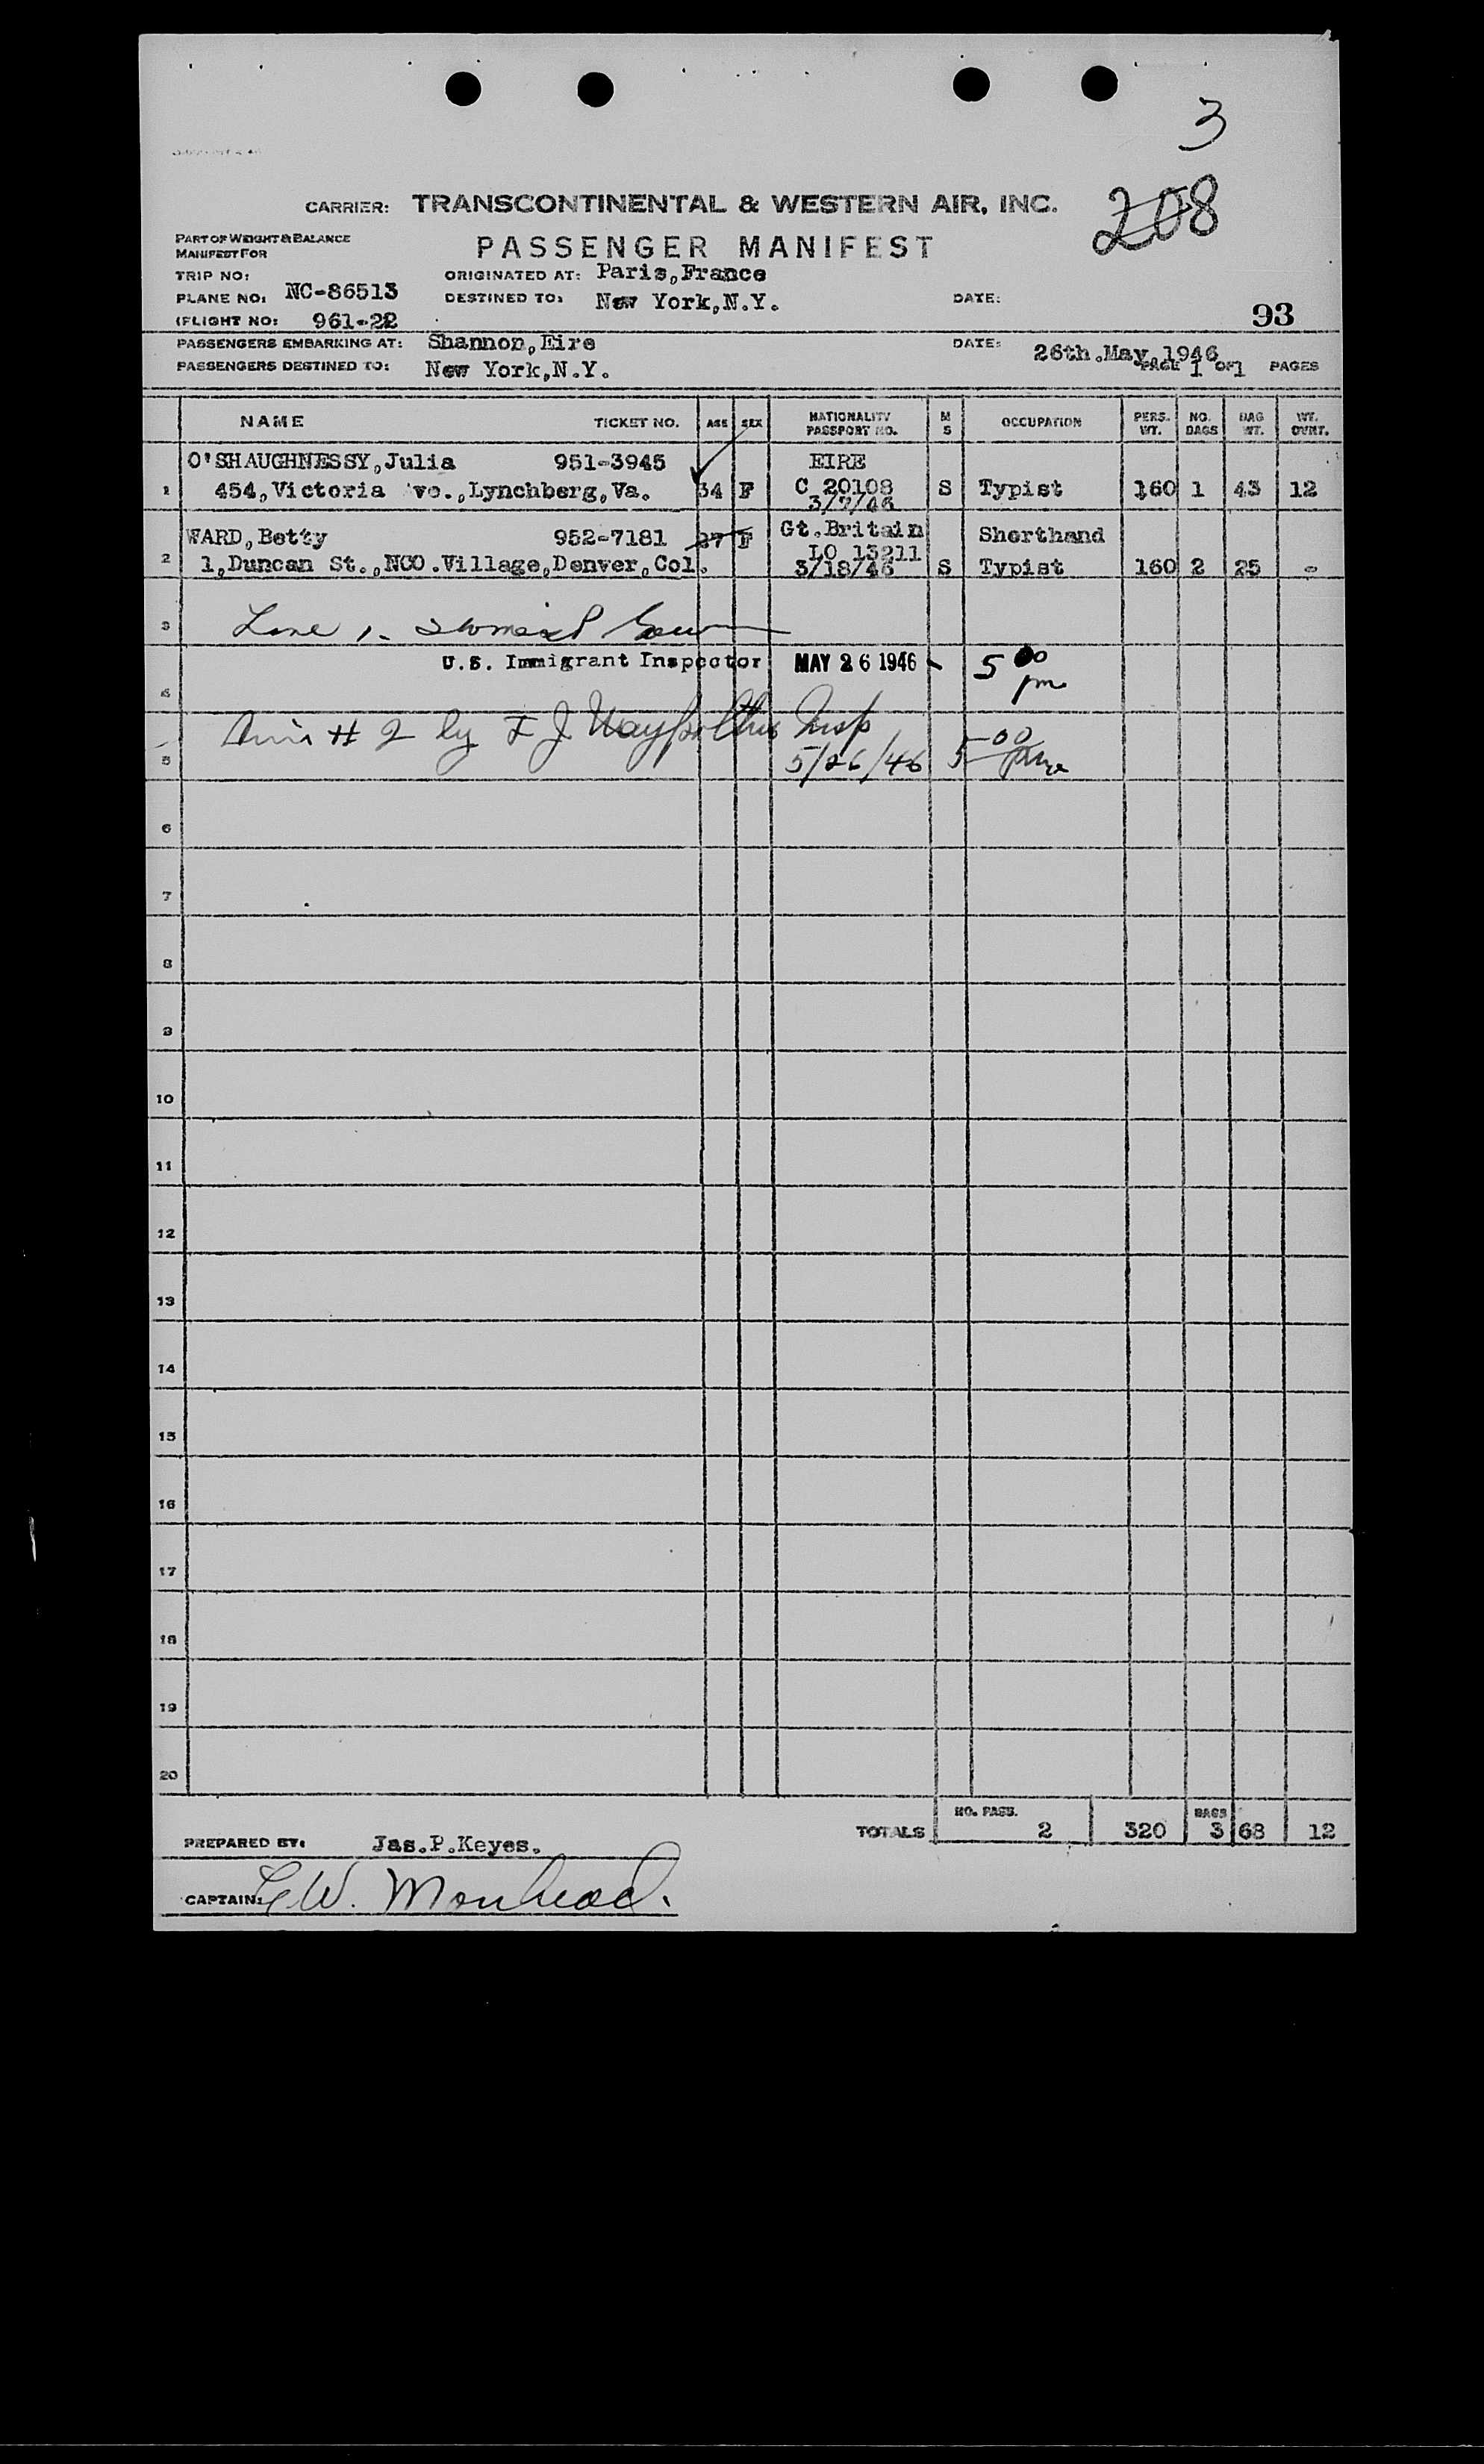 3
CARRIER: TRANSCONTINENTAL & WESTERN AIR, INC.
208
PART OF WEIGHT & BALANCE
MANIFEST FOR
PASSENGER MANIFEST
TRIP NO:
ORIGINATED AT: Paris,France
PLANE NO: NC-86513
DESTINED TO: New York,N.Y.
DATE:
(FLIGHT NO: 961-22
93
PASSENGERS EMBARKING AT: Shannon,Eire
DATE: 26th.May,1946
PASSENGERS DESTINED TO: New York,N.Y.
PAGE 1 OF 1 PAGES
NAME TICKET NO. AGE SEX NATIONALITY PASSPORT NO. M S OCCUPATION PERS. WT. NO. BAGS BAG WT. WT. OVRT.
O'SHAUGHNESSY,Julia 951-3945 EIRE
1 454,Victoria ve.,Lynchberg,Va. 34 F C 20108 S Typist 160 1 43 12
3/7/46
WARD,Betty 952-7181 27 F Gt.Britain Shorthand
LO 13211
2 1,Duncan St.,NCO.Village,Denver,Col. 3/18/46 S Typist 160 2 25 -
3 Line 1-
U.S. Immigrant Inspector MAY 26 1946 - 5 00 pm
4
# 2 by F J Insp
5 5/26/46 5 00 pm
6
7
8
9
10
11
12
13
14
15
16
17
18
19
20
NO. PASS. BAGS
TOTALS 2 320 3 68 12
PREPARED BY: Jas.P.Keyes.
CAPTAIN: